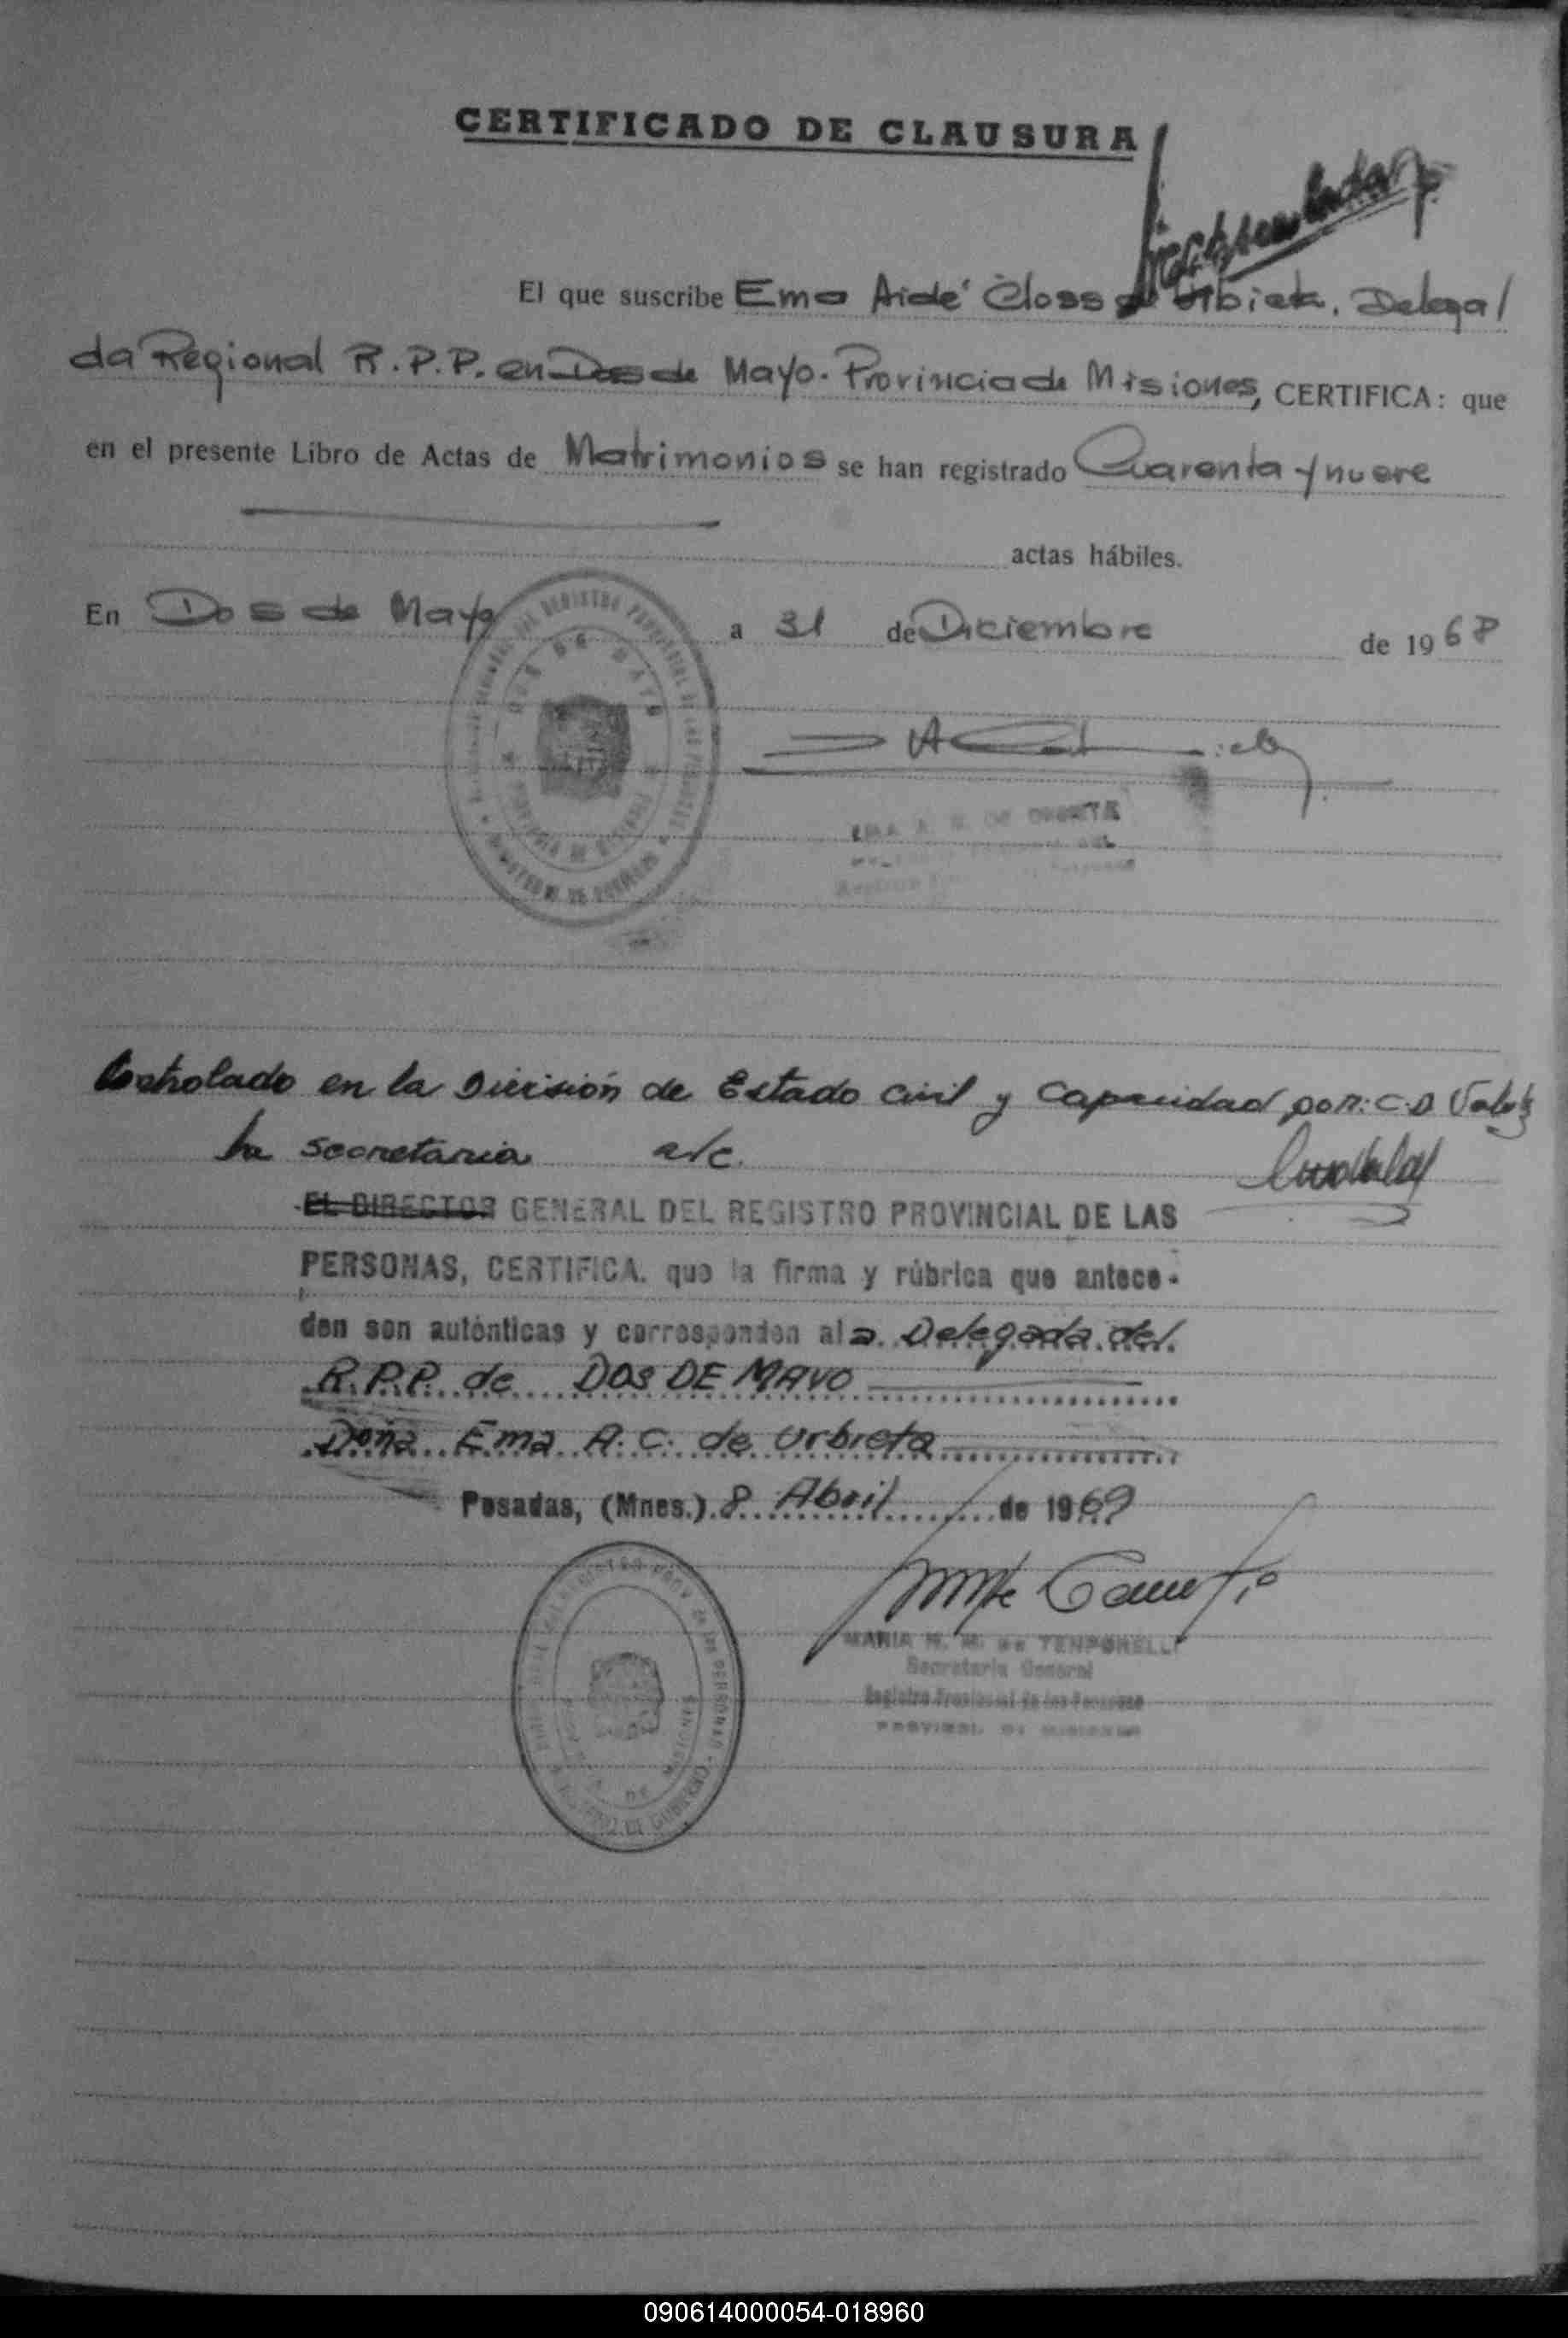 CERTIFICADO DE CLAUSURA
El que suscribe Ema Aidé Closs de Urbieta. Delega/
da Regional R.P.P. en Dos de Mayo. Provincia de Misiones, CERTIFICA: que
en el presente Libro de Actas de Matrimonios se han registrado Cuarenta y nueve
actas hábiles.
En Dos de Mayo a 31 de Diciembre de 1968
DOS DE MAYO
Controlado en la División de Estado Civil y Capacidad por: C.D.
La Secretaria a/c.
EL DIRECTOR GENERAL DEL REGISTRO PROVINCIAL DE LAS
PERSONAS, CERTIFICA. que la firma y rúbrica que antece-
den son auténticas y corresponden al a Delegada del
R.P.P. de DOS DE MAYO
Doña Ema A. C. de Urbieta
Posadas, (Mnes.) 8 Abril de 1969
MARIA M. de TEMPORELLI
Secretaria General
Registro Provincial de las Personas
090614000054-018960